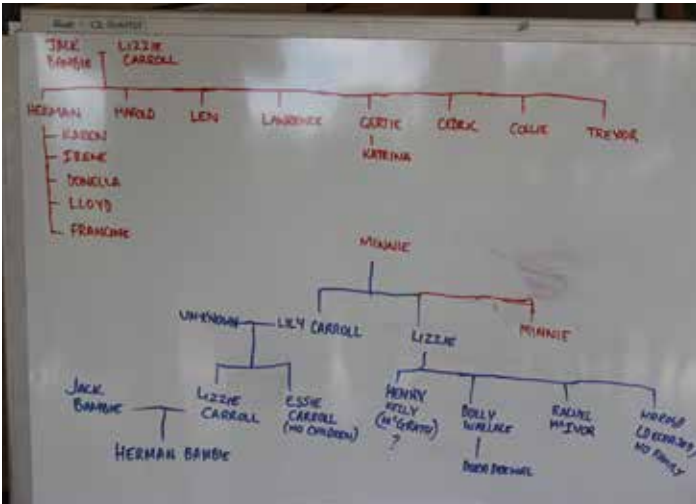 JACK LIZZIE
BAMBIE CARROLL
HERMAN HAROLD LEN LAWRENCE GERTIE CEDRIC COLLIE TREVOR
KAREN
KATRINA
IRENE
DONELLA
LLOYD
FRANCINE
MINNIE
UNKNOWN LILY CARROLL LIZZIE MINNIE
JACK
BAMBIE
LIZZIE
CARROLL
ESSIE
CARROLL
(NO CHILDREN)
HENRY
KELLY
(McGRATH)
?
DOLLY
WALLACE
RACHEL
McIVOR
HAROLD
(DECEASED)
NO FAMILY
HERMAN BAMBIE